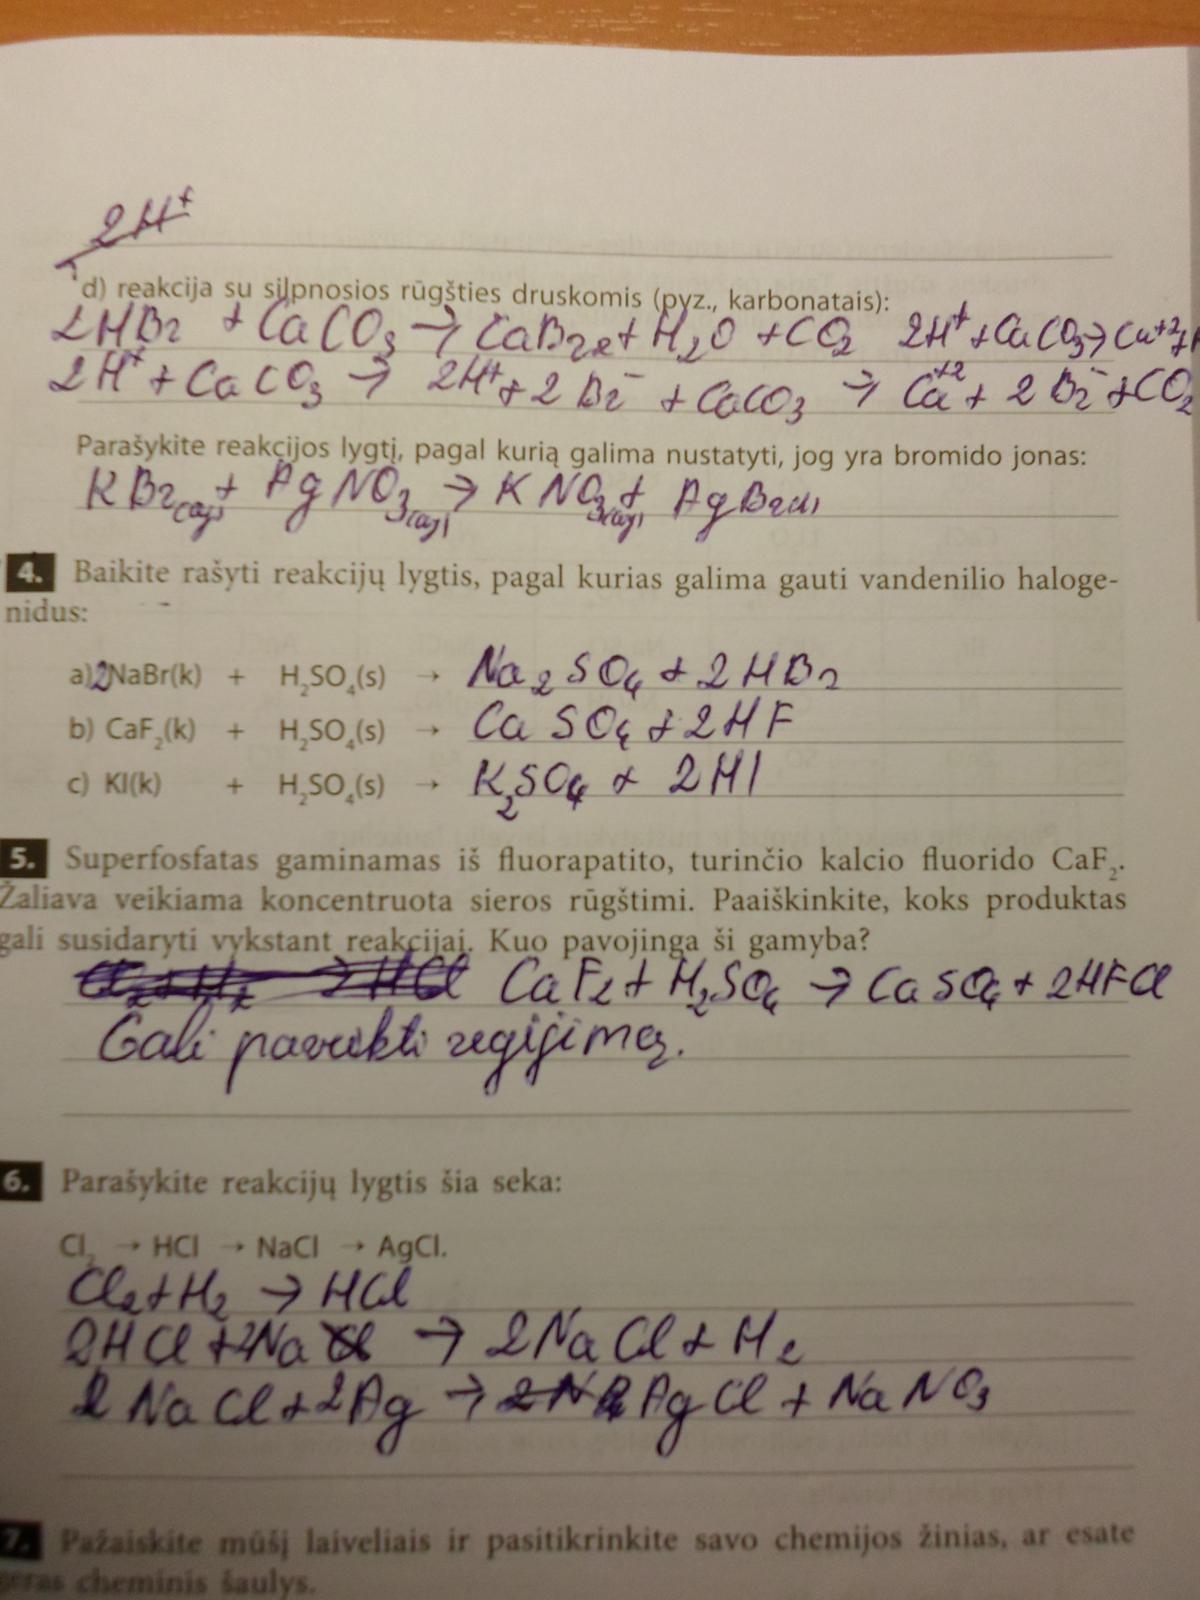 2H⁺
d) reakcija su silpnosios rūgšties druskomis (pvz., karbonatais):
2HBr + CaCO₃ → CaBr₂ + H₂O + CO₂ 2H⁺ + CaCO₃ → Ca⁺² +
2H⁺ + CaCO₃ → 2H⁺ + 2Br⁻ + CaCO₃ → Ca⁺² + 2Br⁻ + CO₂
Parašykite reakcijos lygtį, pagal kurią galima nustatyti, jog yra bromido jonas:
KBr(aq) + AgNO₃(aq) → KNO₃(aq) + AgBr
4. Baikite rašyti reakcijų lygtis, pagal kurias galima gauti vandenilio haloge-
nidus:
a) 2NaBr(k) + H₂SO₄(s) → Na₂SO₄ + 2HBr
b) CaF₂(k) + H₂SO₄(s) → CaSO₄ + 2HF
c) KI(k) + H₂SO₄(s) → K₂SO₄ + 2HI
5. Superfosfatas gaminamas iš fluorapatito, turinčio kalcio fluorido CaF₂.
Žaliava veikiama koncentruota sieros rūgštimi. Paaiškinkite, koks produktas
gali susidaryti vykstant reakcijai. Kuo pavojinga ši gamyba?
Cl₂ + H₂ → HCl CaF₂ + H₂SO₄ → CaSO₄ + 2HFCl
Gali paveikti regėjimą.
6. Parašykite reakcijų lygtis šia seka:
Cl₂ → HCl → NaCl → AgCl.
Cl₂ + H₂ → HCl
2HCl + 2Na → 2NaCl + H₂
2NaCl + 2Ag → 2AgCl + NaNO₃
7. Pažaiskite mūšį laiveliais ir pasitikrinkite savo chemijos žinias, ar esate
geras cheminis šaulys.